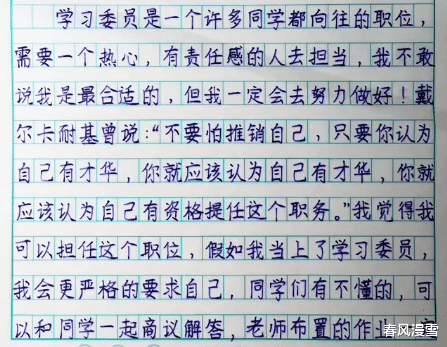 学习委员是一个许多同学都向往的职位，
需要一个热心，有责任感的人去担当，我不敢
说我是最合适的，但我一定会去努力做好！戴
尔卡耐基曾说：“不要怕推销自己，只要你认为
自己有才华，你就应该认为自己有才华，你就
应该认为自己有资格提任这个职务。”我觉得我
可以担任这个职位，假如我当上了学习委员，
我会更严格的要求自己，同学们有不懂的，可
以和同学一起商议解答，老师布置的作业
春风漫雪